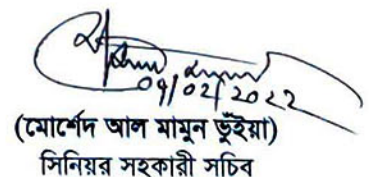 09/02/2022
(মোর্শেদ আল মামুন ভূঁইয়া)
সিনিয়র সহকারী সচিব